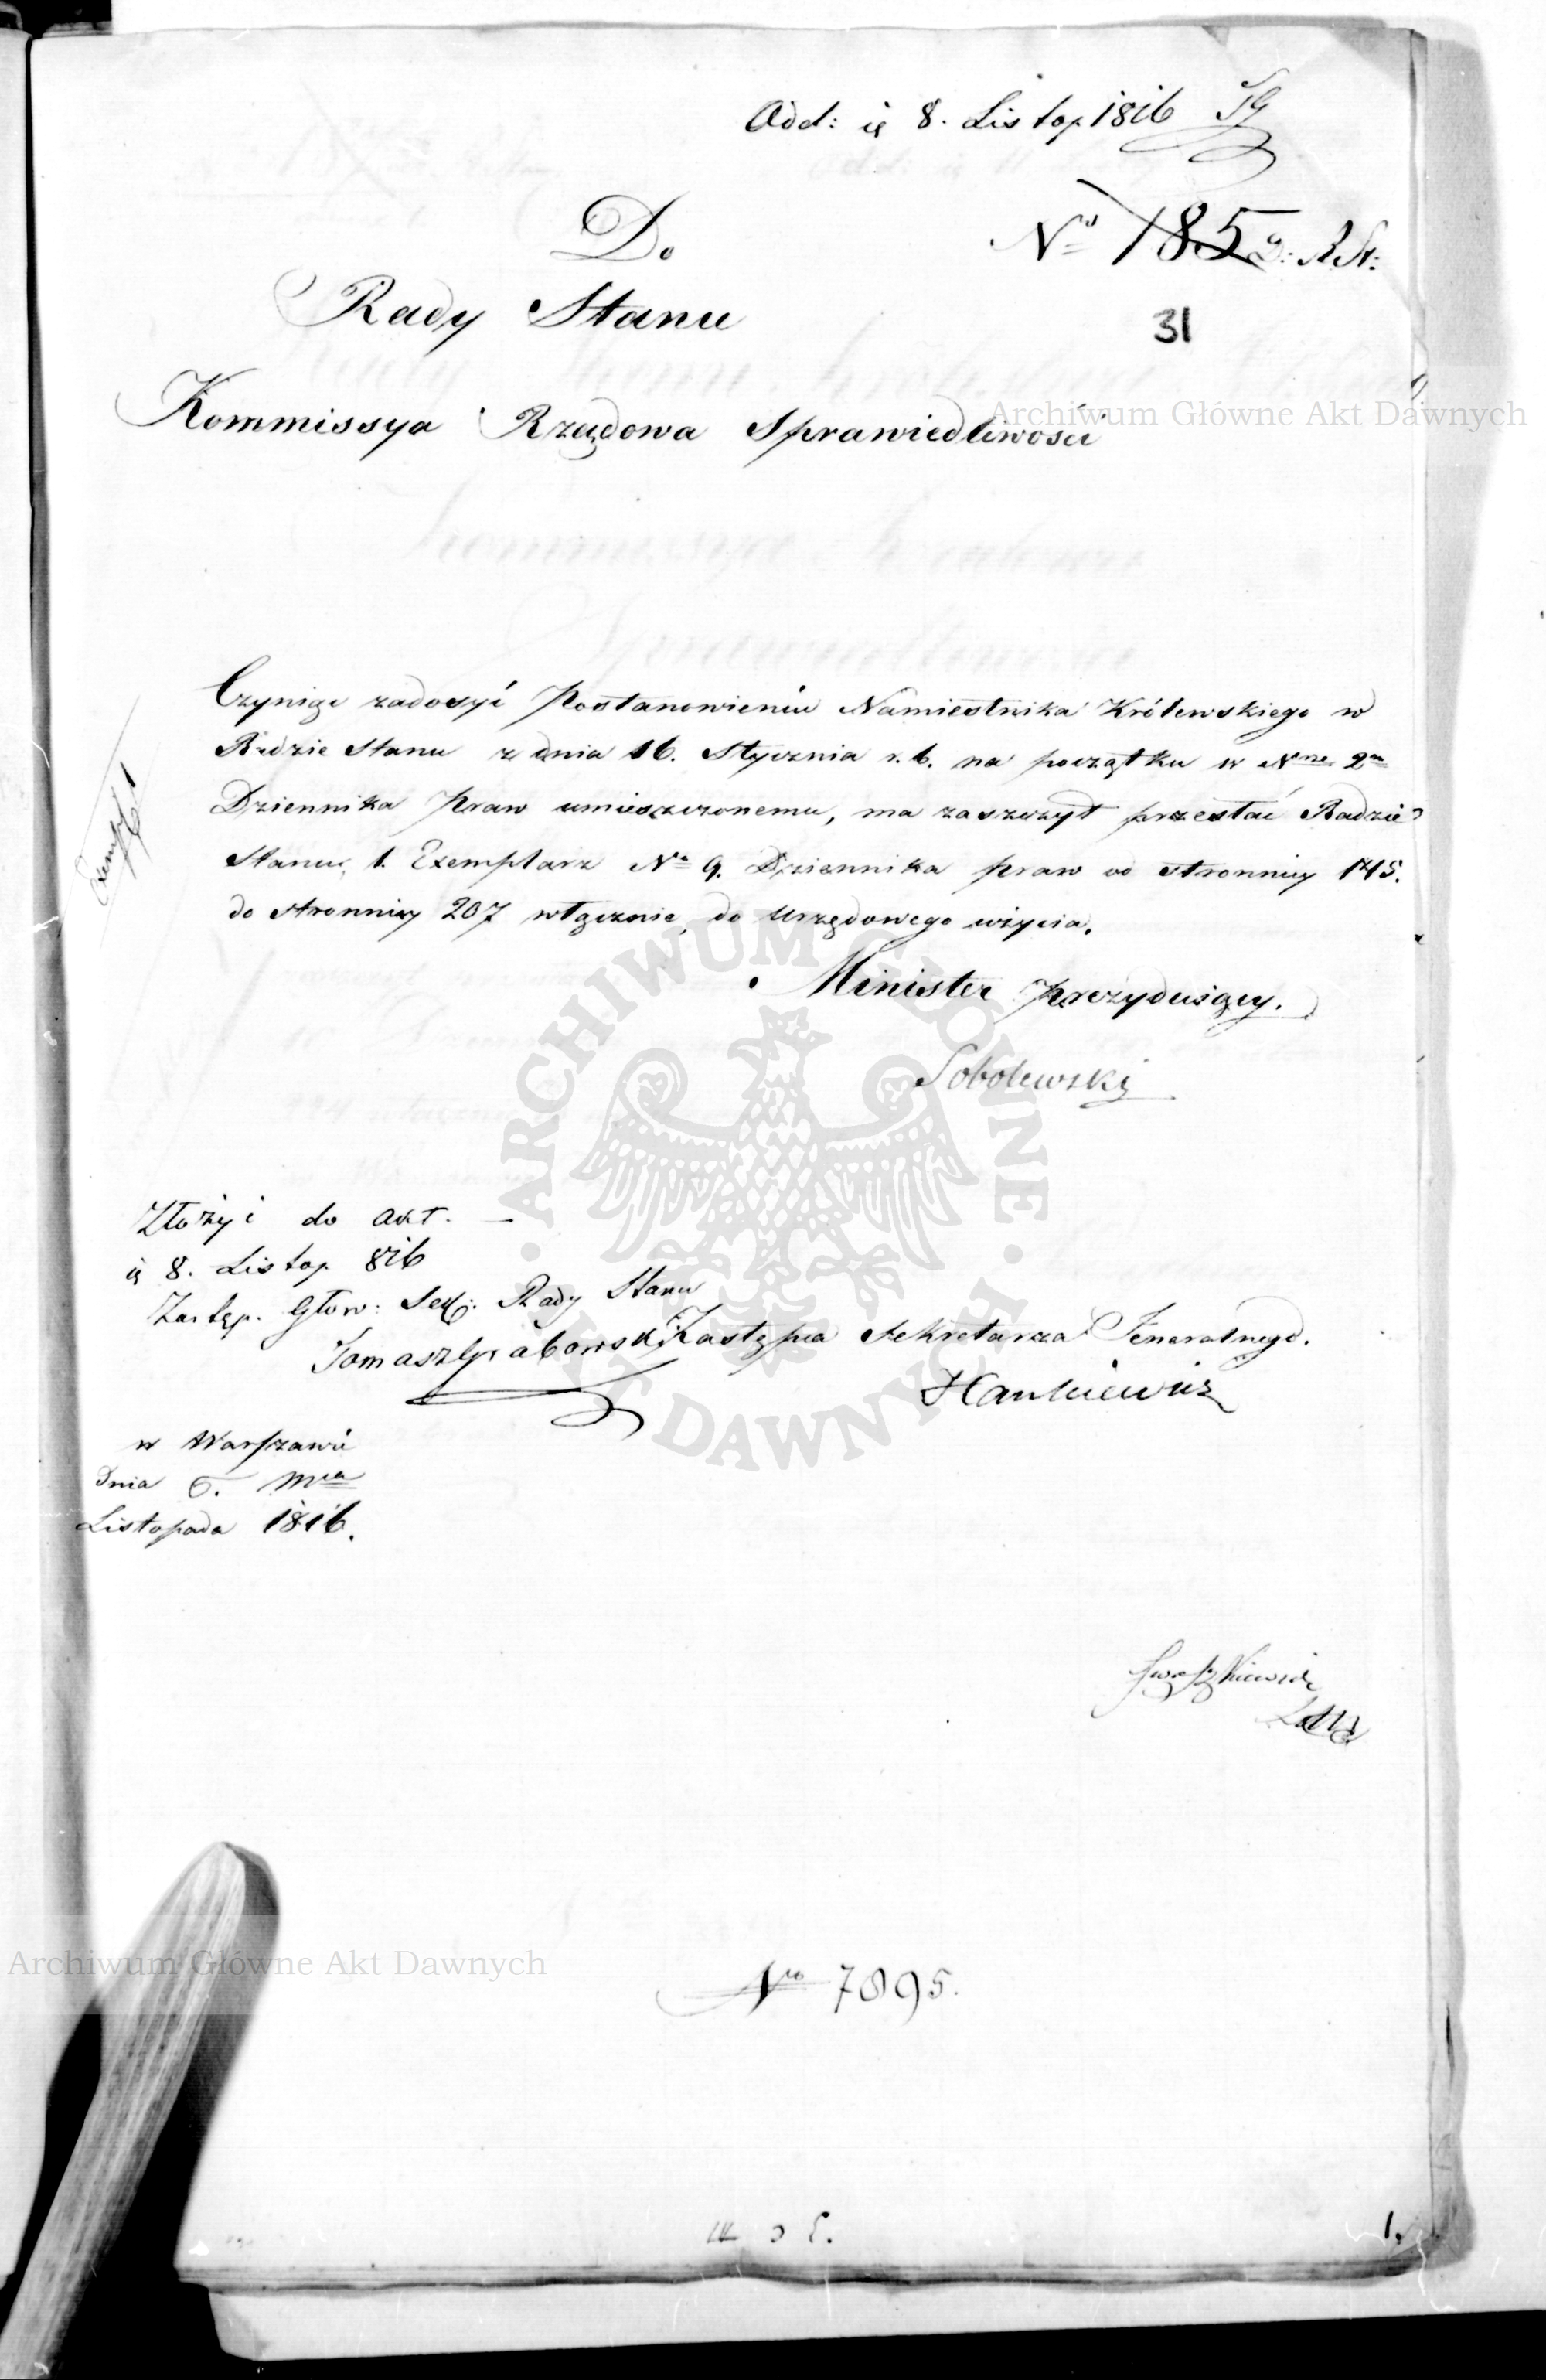 Odd: is 8. Listop 1816 TG
Do
No 185 D: R St:
Rady Stanu
31
Kommissya Rządowa Sprawiedliwości
Archiwum Główne Akt Dawnych
Czyniąc zadosyć Postanowieniu Namiestnika Królewskiego w
Radzie Stanu z dnia 16. Stycznia r. b. na początku w Nrze 2m
Dziennika Praw umieszczonemu, ma zaszczyt przesłać Radzie
Stanu, 1. Exemplarz No 9. Dziennika praw od stronnicy 145.
do stronnicy 207 włącznie, do Urzędowego użycia.
Exempl 1
Minister Prezydujący.
Sobolewski
ARCHIWUM GŁÓWNE AKT DAWNYCH
Złożyć do akt.
is 8. Listop. 816
Zastęp. Głow: Sek: Rady Stanu
Tomasz Grabowski
Zastępca Sekretarza Jeneralnego.
Hankiewicz
w Warszawie
Dnia 6. Mca
Listopada 1816.
Archiwum Główne Akt Dawnych
No 7895.